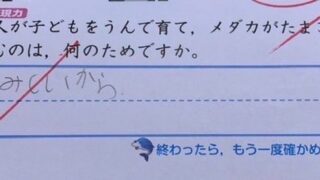 現力
人が子どもをうんで育て，メダカがたま
むのは，何のためですか。
みしいから
終わったら，もう一度確かめ